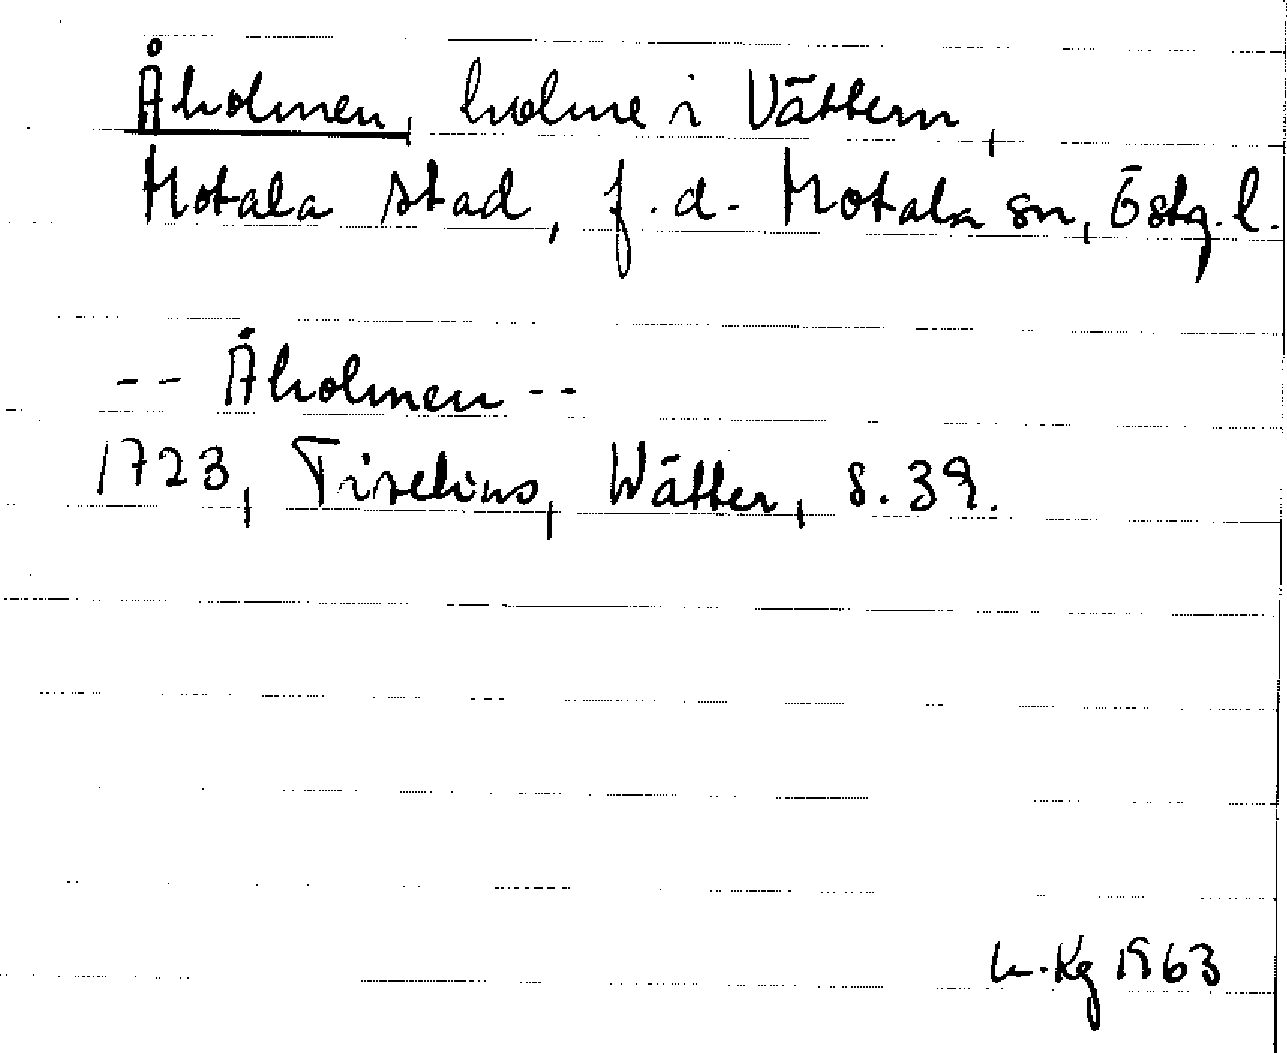 Åholmen, holme i Vättern,
Motala stad, f.d. Motala sn, Östg. l.
-- Åholmen --
1723, Tiselius, Wätter, s. 39.
Kg 1963